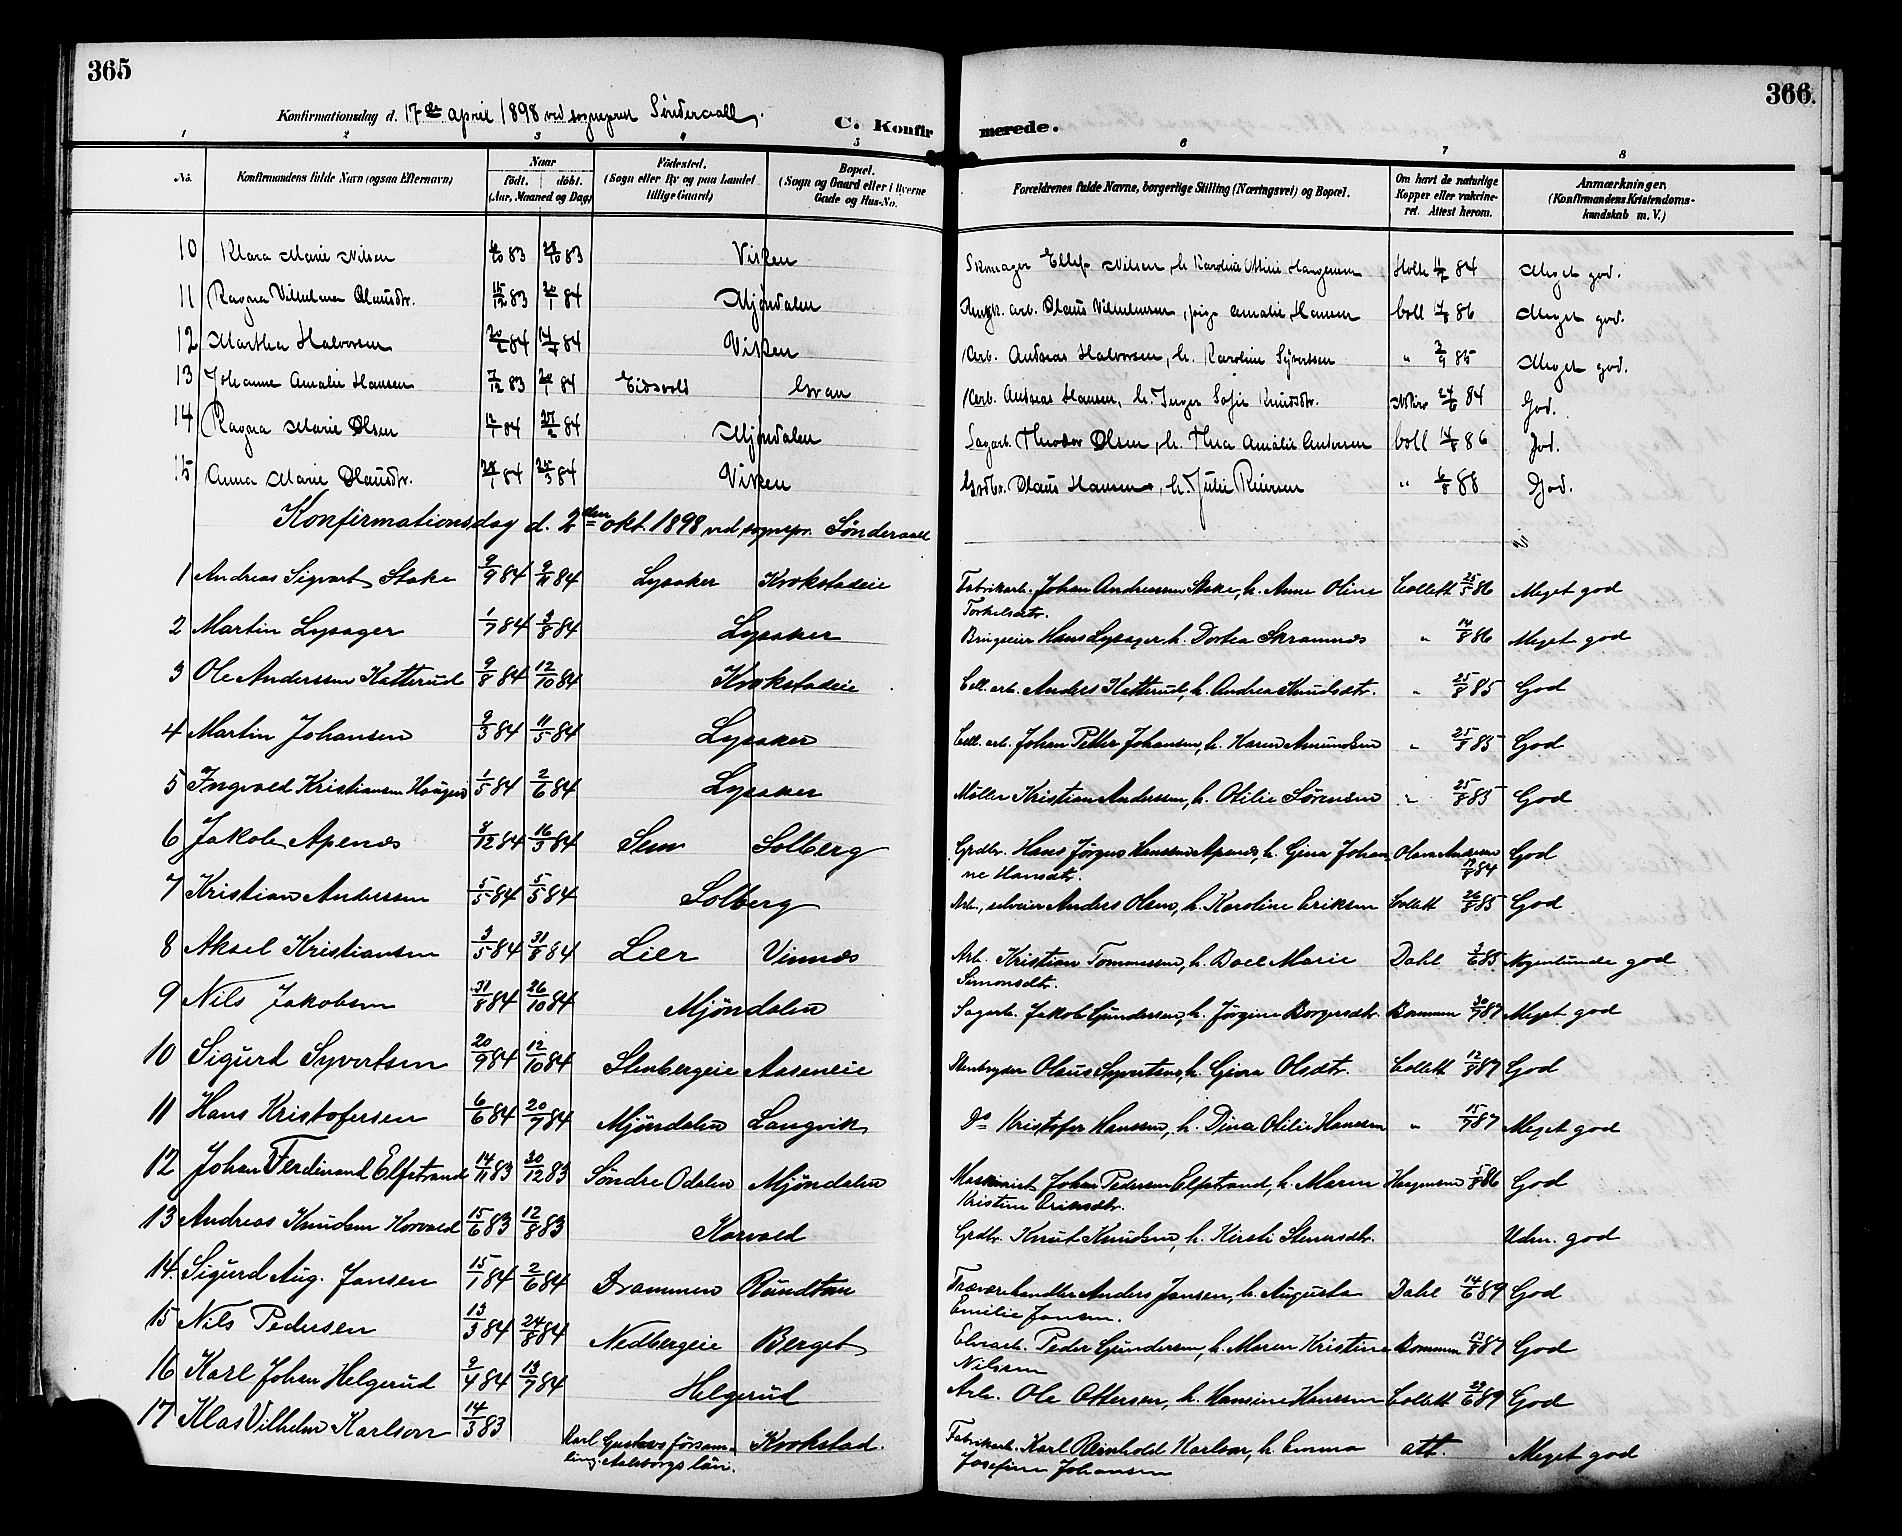 365
366.
Konfirmationsdag d. 17de april 1898 ved sognepræst Sönderaall.
C. Konfirmerede.
1 2 3 4 5 6 7 8
No. Konfirmandens fulde Navn (ogsaa Efternavn) Naar födt. döbt. (Aar, Maaned og Dag) Födested. (Sogn eller By og paa Landet tillige Gaard) Bopæl. (Sogn og Gaard eller i Byerne Gade og Hus-No. Forældrenes fulde Navne, borgerlige Stilling (Næringsvei) og Bopæl. Om havt de naturlige Kopper eller vakcineret. Attest herom. Anmærkninger. (Konfirmandens Kristendomskundskab m. V.)
10 Klara Marie Nilsen /10 83 28/10 83 Visken Skomager Ellef Nilsen, h. Karoline Othilie 84 Meget god.
11 Ragna Vilhelmine Olausdtr. 15/12 83 20/1 84 Mjöndalen arb. Olaus Vilhelmsen, pige Amalie Hansen Coll 86 Meget god.
12 Martha Halvorsen 84 84 Visken Arb. Andreas Halvorsen, h. Karoline Syvertsen " 85 Meget god.
13 Johanne Amalie Hansen 7/12 83 20/1 84 Eidsvold Gran Arb. Andreas Hansen, h. Inger Sofie Knudsdtr. 84 God.
14 Ragna Marie Olsen 84 27/2 84 Mjöndalen Sagarb. Theodor Olsen, h. Thea Amalie Andersen Coll 14/8 86 God.
15 Anna Marie Olausdtr. 84 25/3 84 Visken Grdbr. Olaus Hansen, h. Julie Reiersen " 6/8 88 God.
Konfirmationsdag d. 2den okt. 1898 ved sognepr. Sönderaall
1 Andreas Sigvart Stake 9/9 84 9/11 84 Lysaker Krokstadeie Fabrikarb. Johan Andreassen Stake, h. Anne Oline Torkelsdtr. Collett 25/5 86 Meget god
2 Martin Lysager 1/7 84 3/8 84 Lysaker Brugseier Hans Lysager, h. Dortea Skramnæs " 14/8 86 Meget god
3 Ole Anderssen Katterud 9/8 84 12/10 84 Krokstadeie Cell. arb. Anders Katterud, h. Andrea Knudsdtr. " 25/8 85 God
4 Martin Johansen 9/3 84 11/5 84 Lysaker Cell. arb. Johan Petter Johansen, h. Karen Amundsen " 25/8 85 God
5 Ingvald Kristiansen Haugen 1/5 84 2/6 84 Lysaker Möller Kristian Anderssen, h. Otilie Sörensen " 25/8 85 God
6 Jakob Apenæs 3/12 84 16/3 84 Sem Solberg Grdbr. Hans Jörgen Hanssen Apenæs, h. Gina Johanne Hansdtr. 84 God
7 Kristian Anderssen 5/5 84 5/5 84 Solberg Arb., selveier Anders Olsen, h. Karoline Eriksen Collett 26/8 85 God
8 Aksel Kristiansen 3/5 84 31/8 84 Lier Vinnæs Arb. Kristian Tommessen, h. Boel Marie Simonsdtr. Dahl 3/6 85 Nogenlunde god
9 Nils Jakobsen 31/8 84 26/10 84 Mjöndalen Sagarb. Jakob Gundersen, h. Jörgine Borgersdtr. Bommen 30/7 87 Meget god
10 Sigurd Syvertsen 20/9 84 12/10 84 Stenbergeie Aaseneie Stenbryder Olaus Syvertsen, h. Gina Olsdtr. Collett 12/8 87 God
11 Hans Kristofersen 6/6 84 20/7 84 Mjöndalen Langvik Do Kristofer Hanssen, h. Dina Otilie Hansen " 15/7 87 Meget god
12 Johan Ferdinand Elfstrand 14/11 83 30/12 83 Söndre Odalen Mjöndalen Maskinist Johan Pedersen Elfstrand, h. Maren Kristine Eriksdtr. 5/8 86 God
13 Andreas Knudsen Horvold 15/6 83 12/8 83 Horvold Grdbr. Knut Knudsen, h. Kirsti Stenersdtr. Udm. god
14. Sigurd Aug. Jansen 15/1 84 2/6 84 Drammen Rundtom Trævarehandler Anders Jansen, h. Augusta Emilie Jansen. Dahl 14/6 89 God
15 Nils Pedersen 13/3 84 24/8 84 Nedbergeie Berget Peder Gundersen, h. Maren Kristine Nilssen Bommen 13/8 87 God
16 Karl Johan Helgerud 2/4 84 13/7 84 Helgerud Arb. Ole Ottersen, h. Hansine Hanssen Collett 23/6 89 God
17 Klas Vilhelm Karlson 14/3 83 Karl Gustavs församling. Aalsborgs län. Krokstad. Fabrikarb. Karl Reinhold Karlson, h. Emma Josefine Johansen att. Meget god